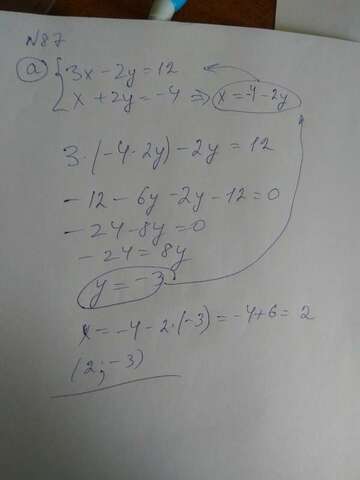 №87
а) { 3x - 2y = 12
x + 2y = -4 => x = -4 - 2y
3·(-4-2y) - 2y = 12
-12 - 6y - 2y - 12 = 0
-24 - 8y = 0
-24 = 8y
y = -3
x = -4 - 2·(-3) = -4 + 6 = 2
(2; -3)